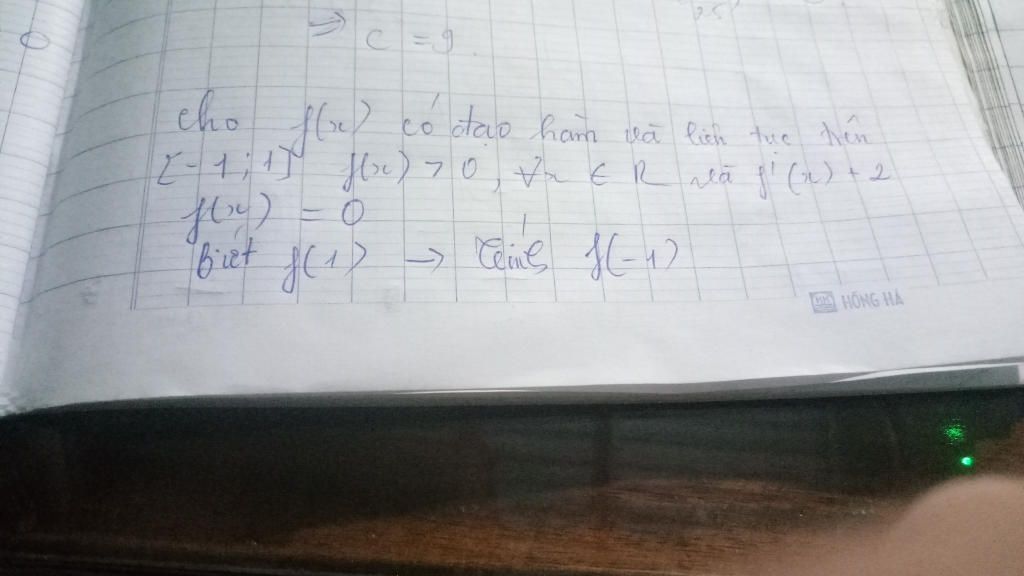 ⇒ C = 9.
Cho f(x) có đạo hàm và liên tục trên
[-1; 1] f(x) > 0, ∀x ∈ R và f'(x) + 2
f(x) = 0
Biết f(1) → Tính f(-1)
HH HỒNG HÀ